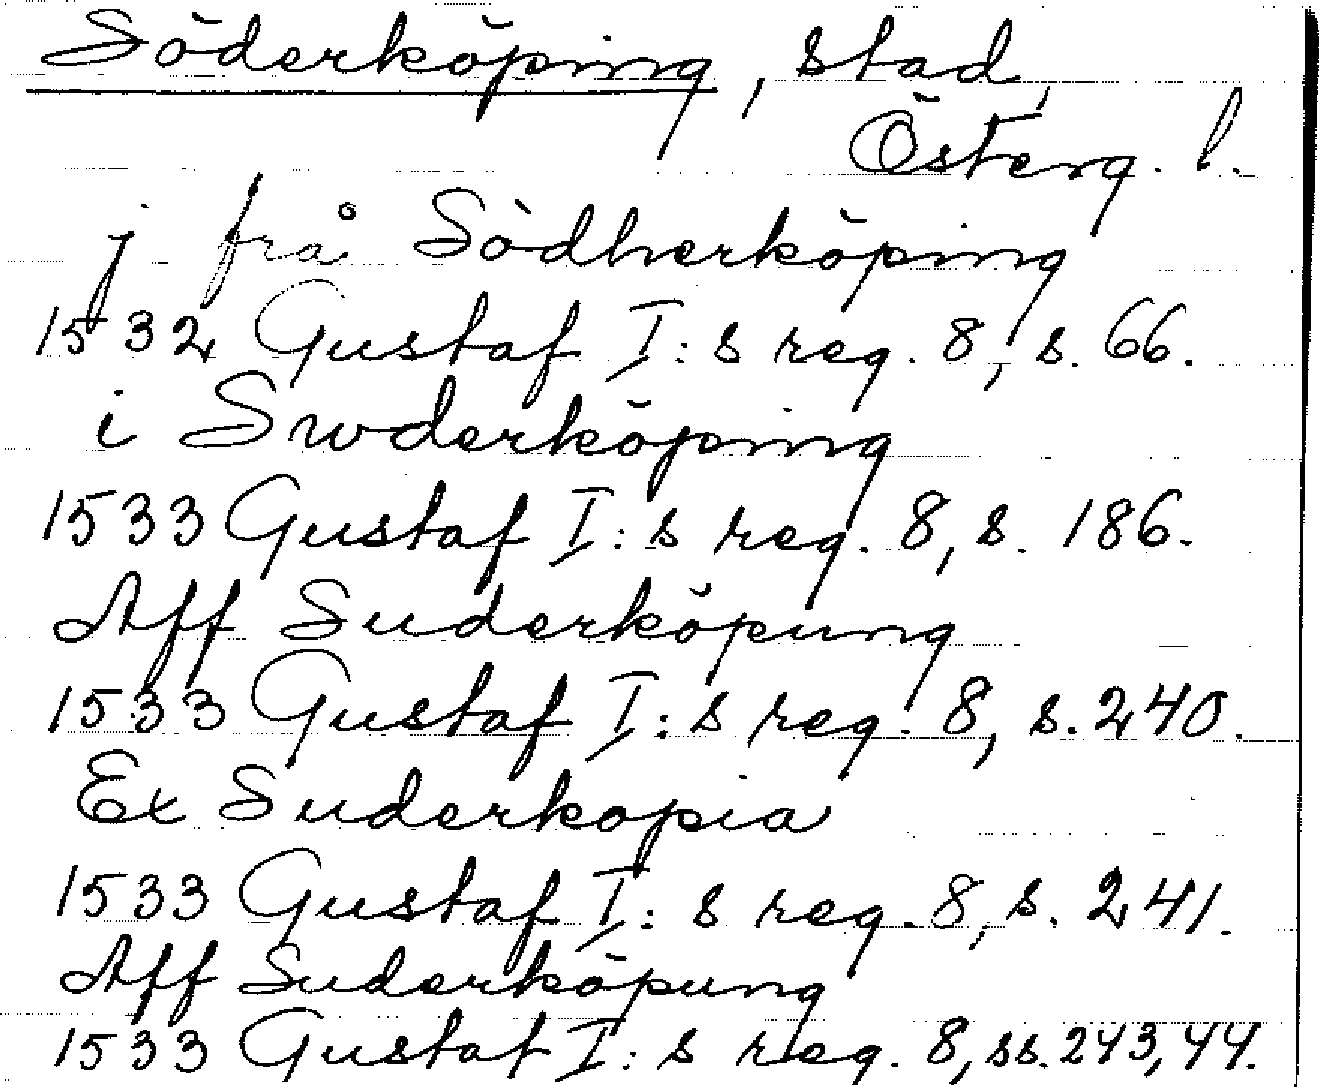 Söderköping, stad,
Österg. l.
j från Södherköping
1532 Gustaf I:s reg. 8, s. 66.
i Swderköping
1533 Gustaf I:s reg. 8, s. 186.
Aff Suderköpung
1533 Gustaf I:s reg. 8, s. 240.
Ex Suderkopia
1533 Gustaf I:s reg. 8, s. 241.
Aff Suderköpung
1533 Gustaf I:s reg. 8, ss. 243, 44.